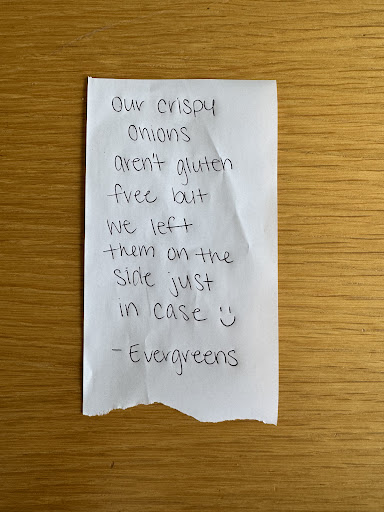 our crispy
onions
aren't gluten
free but
we left
them on the
side just
in case :)
- Evergreens